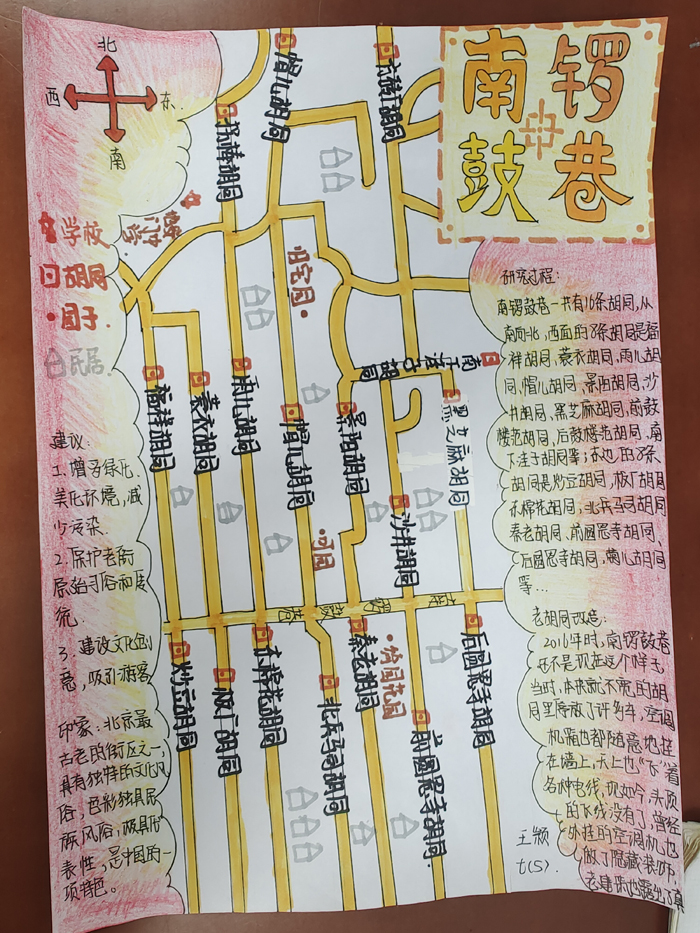 南锣
鼓巷
北
西
东
南
学校
胡同
园子
民居
帽儿胡同
拐棒胡同
旧宅园
福祥胡同
蓑衣胡同
雨儿胡同
帽儿胡同
景阳胡同
南下洼子胡同
黑芝麻胡同
沙井胡同
可园
南锣鼓巷
炒豆胡同
板厂胡同
东棉花胡同
北兵马司胡同
秦老胡同
前圆恩寺胡同
后圆恩寺胡同
建议:
1. 增多绿化,
美化环境,减
少污染.
2. 保护老街
原始习俗和
3. 建设文化创
意,吸引游客
印象: 北京最
古老的街区之一,
具有独特的文化风
俗,色彩独具民
族风俗,极具代
表性,是中国的一
项特色。
研究过程:
南锣鼓巷一共有16条胡同,从
南向北,西面的8条胡同是福
祥胡同,蓑衣胡同,雨儿胡
同,帽儿胡同,景阳胡同,沙
井胡同,黑芝麻胡同,前鼓
楼苑胡同,后鼓楼苑胡同,南
下洼子胡同等;东边的8条
胡同是炒豆胡同,板厂胡同
东棉花胡同,北兵马司胡同
秦老胡同,前圆恩寺胡同、
后圆恩寺胡同,菊儿胡同
等...
老胡同改造:
2016年时,南锣鼓巷
还不是现在这个样子
当时,本来就不宽的胡
同里停放了许多车,空调
机箱也都随意地挂
在墙上,天上也“飞”着
各种电线,现如今,头顶
的飞线没有了,曾经
外挂的空调机,也
做了隐藏装饰
老建筑也露出了真
王颢